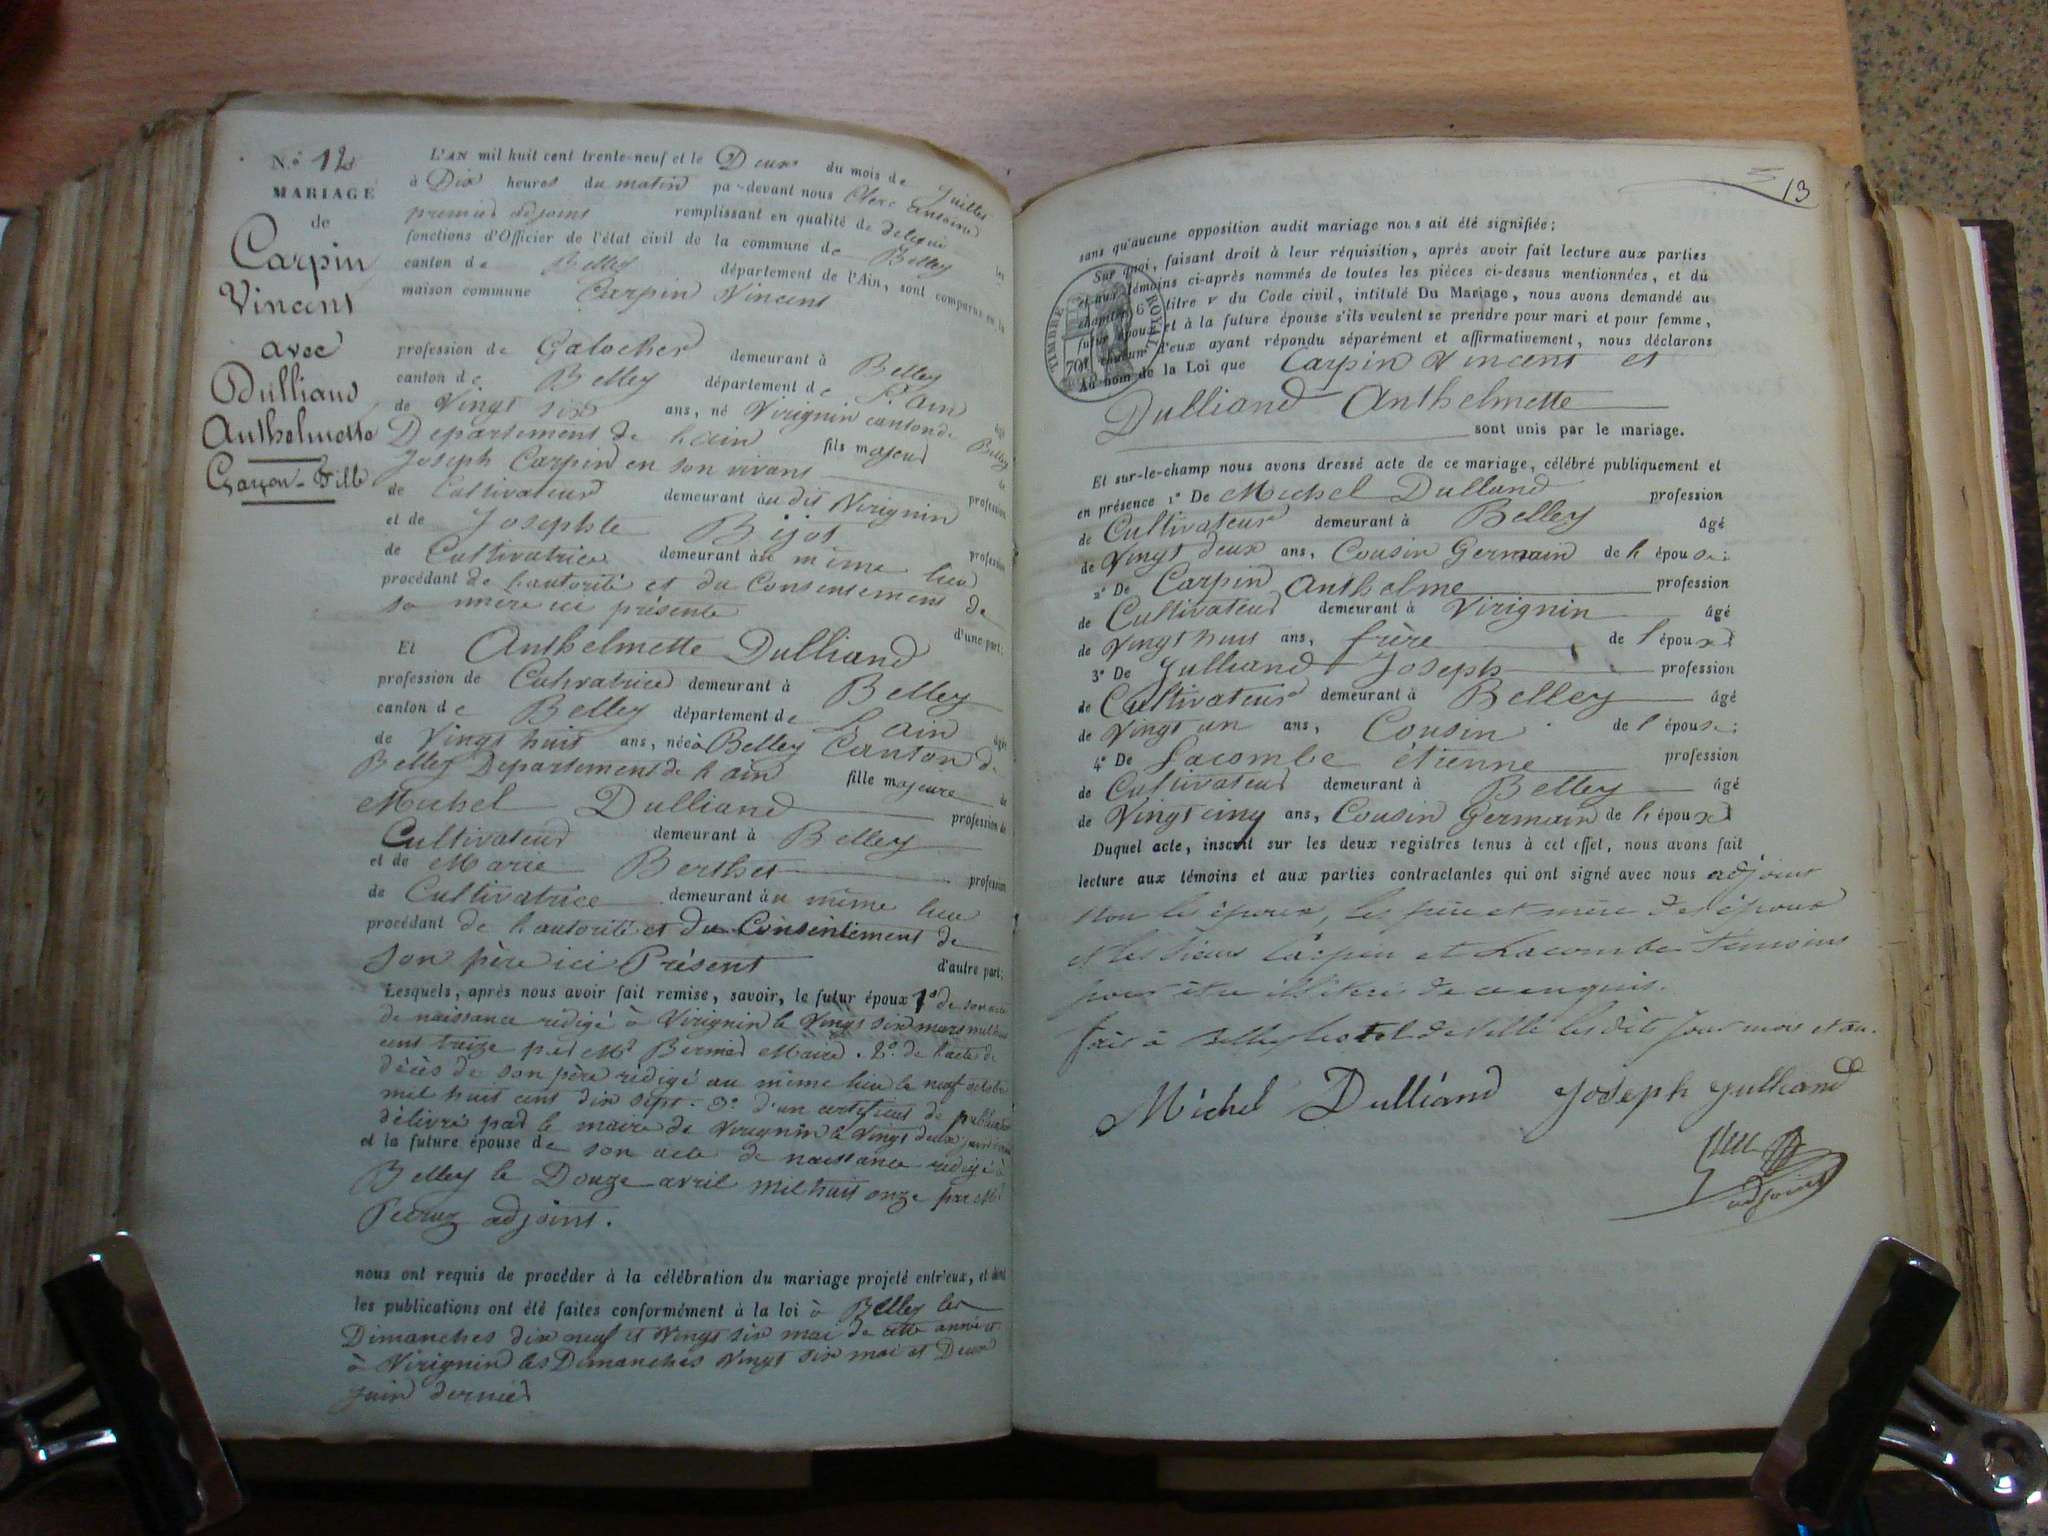 N.° 12
MARIAGE
de
Carpin
Vincent
avec
Dulliand
Anthelmette
Garçon - Fille
L'AN mil huit cent trente-neuf et le Deux du mois de Juillet
à Dix heures du matin par-devant nous Clerc Antoine
premier adjoint remplissant en qualité de délégué les
fonctions d'Officier de l'état civil de la commune de Belley
canton de Belley département de l'Ain, sont comparus en la
maison commune Carpin Vincent
profession de Galocher demeurant à Belley
canton de Belley département de l'ain âgé
de Vingt six ans, né Virignin canton de Belley
Département de l'ain fils majeur de
Joseph Carpin en son vivant profession
de Cultivateur demeurant au dit Virignin
et de Josephte Bijot profession
de Cultivatrice demeurant au même lieu
procédant de l'autorité et du Consentement de
sa mère ici présente d'une part:
Et Anthelmette Dulliand
profession de Cultivatrice demeurant à Belley
canton de Belley département de L'ain âgée
de Vingt huit ans, née à Belley Canton de
Belley Département de l'ain fille majeure de
Michel Dulliand profession de
Cultivateur demeurant à Belley
et de Marie Berthet profession
de Cultivatrice demeurant au même lieu
procédant de l'autorité et du Consentement de
Son père ici Présent d'autre part:
Lesquels, après nous avoir fait remise, savoir, le futur époux 1° de son acte
de naissance rédigé à Virignin le Vingt six mars mil huit
cent treize par Mr Maire. 2° de l'acte de
décès de son père rédigé au même lieu le neuf octobre
mil huit cent dix sept. 3° d'un certificat de publication
délivré par le maire de Virignin le Vingt deux juin
et la future épouse de son acte de naissance rédigé à
Belley le Douze avril mil huit onze par Mr
adjoint.
nous ont requis de procéder à la célébration du mariage projeté entr'eux, et dont
les publications ont été faites conformément à la loi à Belley les
Dimanches dix neuf et Vingt six mai de cette année et
à Virignin les Dimanches Vingt six mai et Deux
juin dernier
13
sans qu'aucune opposition audit mariage nous ait été signifiée;
Sur quoi, faisant droit à leur réquisition, après avoir fait lecture aux parties
et aux témoins ci-après nommés de toutes les pièces ci-dessus mentionnées, et du
chapitre 6 titre V du Code civil, intitulé Du Mariage, nous avons demandé au
futur époux et à la future épouse s'ils veulent se prendre pour mari et pour femme,
chacun d'eux ayant répondu séparément et affirmativement, nous déclarons
Au nom de la Loi que Carpin Vincent et
TIMBRE ROYAL
70
Dulliand Anthelmette
sont unis par le mariage.
Et sur-le-champ nous avons dressé acte de ce mariage, célébré publiquement et
en présence 1° De Michel Dulland profession
de Cultivateur demeurant à Belley âgé
de Vingt deux ans, Cousin Germain de l'épouse:
2° De Carpin Anthelme profession
de Cultivateur demeurant à Virignin âgé
de Vingt huit ans, frère de l'époux:
3° De Julliand Joseph profession
de Cultivateur demeurant à Belley âgé
de Vingt un ans, Cousin de l'épouse:
4° De Lacombe étienne profession
de Cultivateur demeurant à Belley âgé
de Vingt cinq ans, Cousin Germain de l'époux
Duquel acte, inscrit sur les deux registres tenus à cet effet, nous avons fait
lecture aux témoins et aux parties contractantes qui ont signé avec nous adjoint
non les époux, les père et mère des époux
et les Sieurs Carpin et Lacombe témoins
pour être illitéré de ce enquis.
fait à Belley hotel de Ville les dits jour mois et an.
Michel Dulliand Joseph Julliand
Clerc
adjoint